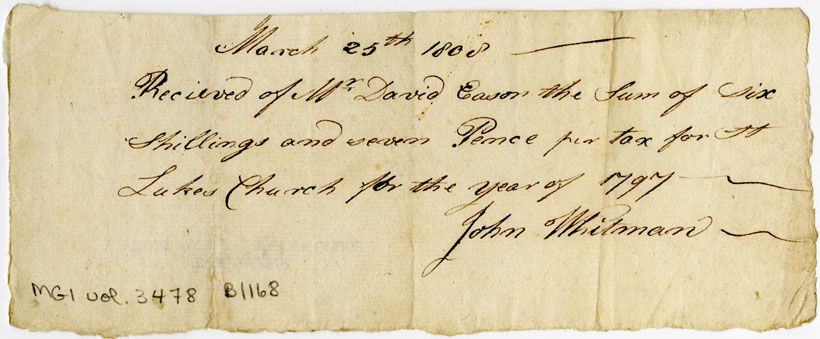 March 25th 1808
Recieved of Mr David Eason the Sum of Six
Shillings and seven Pence per tax for St
Lukes Church for the year of 1797
John Whitman
MG1 vol. 3478 B1168